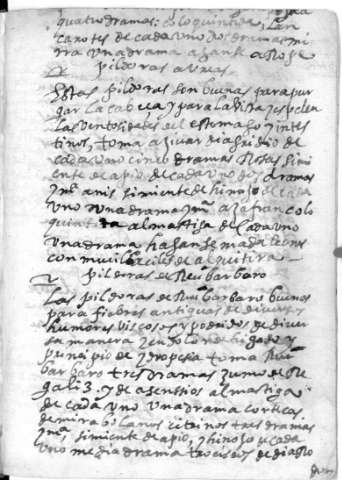 quatro dramas: coloquintida, 
carotes de cada uno dos dramas mi
rra una drama agan se
pildoras aureas
Estas pildoras son buenas para pur
gar la cabeça y para la vista y espelen
las ventosidades del estomago y intes
tinos, toma açiuar diagridio de
cada uno cinco dramas Rosas simi
ente de apio de cada uno dos dramas
ynᵃ anis simiente de hinojo de cada
uno una drama ynᵃ azafran colo
quintida almastiga de cada uno
una drama hagan se
con mucilla de alquitira
pildoras de Reubarbaro
Las pildoras de Reubarbaro buenas
para fiebres antiguas de diversos
humores biscosos y podridos de diver
sa manera y en dolor de higado y
principio de ydropesia toma Reu
barbaro tres dramas zumo de Re
galiz. y de asensios almastiga
de cada uno una drama corticas
de mirabolanos citrinos tres dramas
ynᵃ, simiente de apio, y hinojo de cada
uno media drama trociscos de diaro